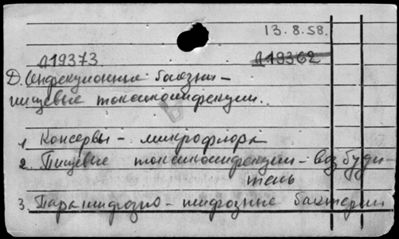 13.8.58.
Д19373 Д19362
Д. Инфекционные болезни –
пищевые токсикоинфекции.
1. Консервы – микрофлора
2. Пищевые токсикоинфекции – возбуди-
тель
3. Паратифозно – тифозные бактерии